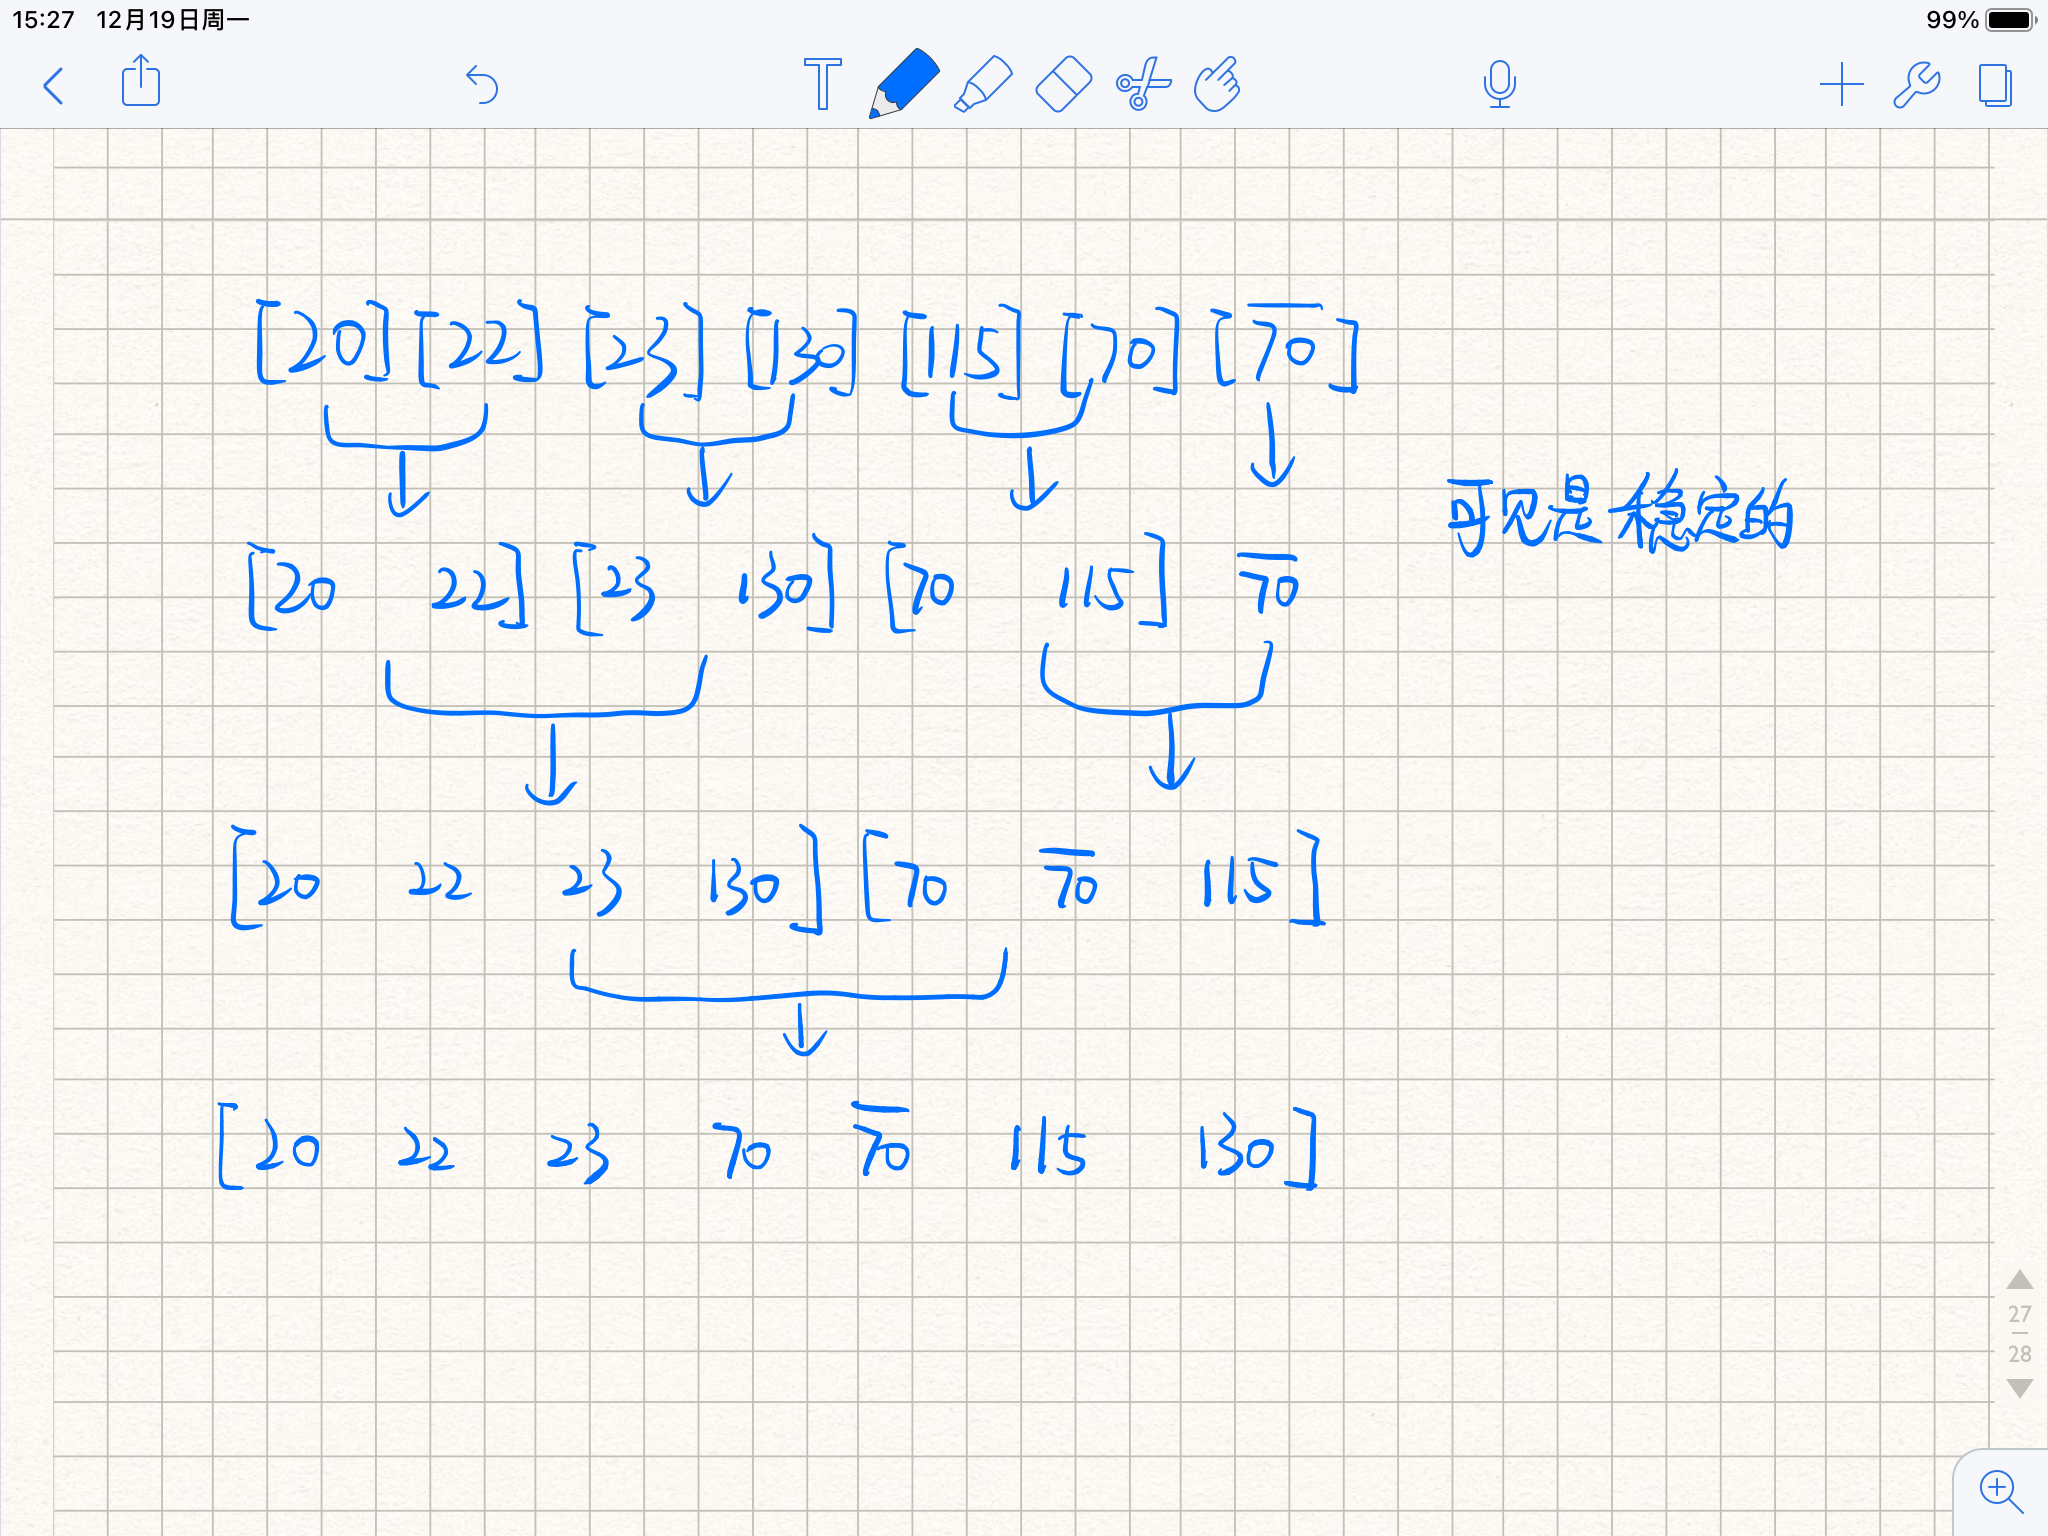 15:27 12月19日周一 99%
T
[20] [22] [23] [130] [115] [70] [7̅0̅]
可见是稳定的
[20 22] [23 130] [70 115] 7̅0̅
[20 22 23 130] [70 7̅0̅ 115]
[20 22 23 70 7̅0̅ 115 130]
27
28